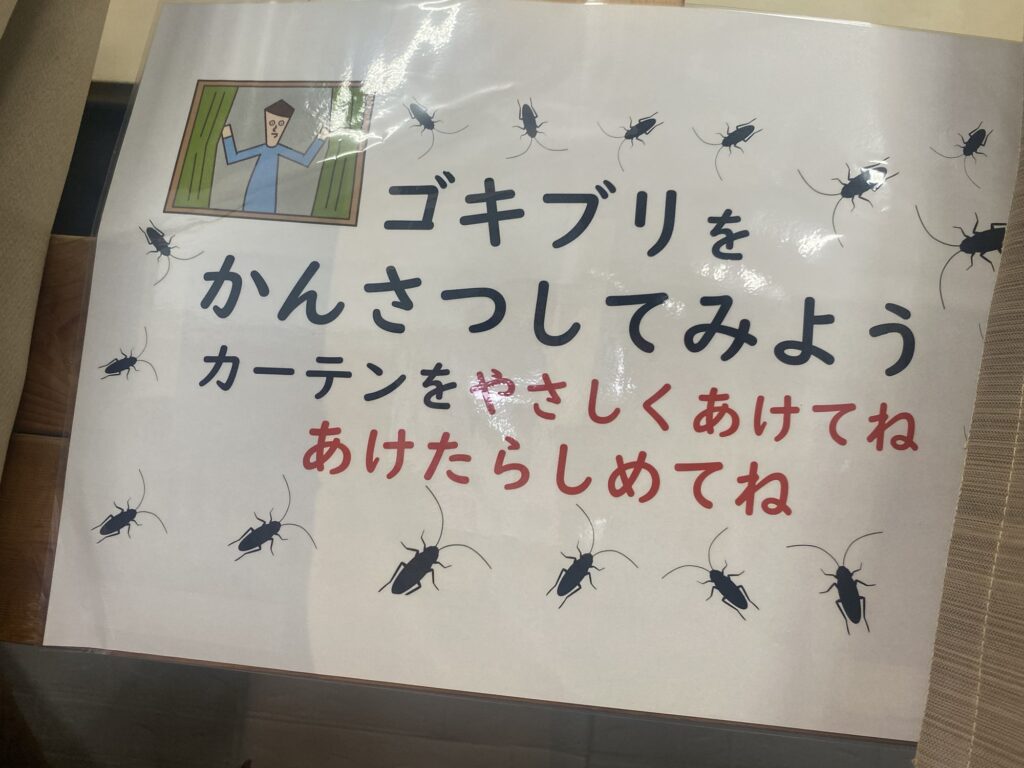 ゴキブリを
かんさつしてみよう
カーテンをやさしくあけてね
あけたらしめてね